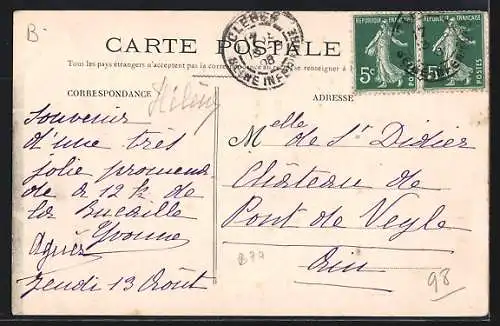 B-
CARTE POSTALE
Tous les pays étrangers n'acceptent pas la correspondance se renseigner à
REPUBLIQUE FRANÇAISE
5c
POSTES
REPUBLIQUE FRANÇAISE
5c
POSTES
CLÈRES
08
SEINE INFRE
CORRESPONDANCE
Hélène
ADRESSE
Souvenir
d'une très
jolie promena-
de à 12 k de
la Bucaille
Yvonne
Agnès
Jeudi 13 Août
Melle de St Didier
Château de
Pont de Veyle
Ain
B77
98